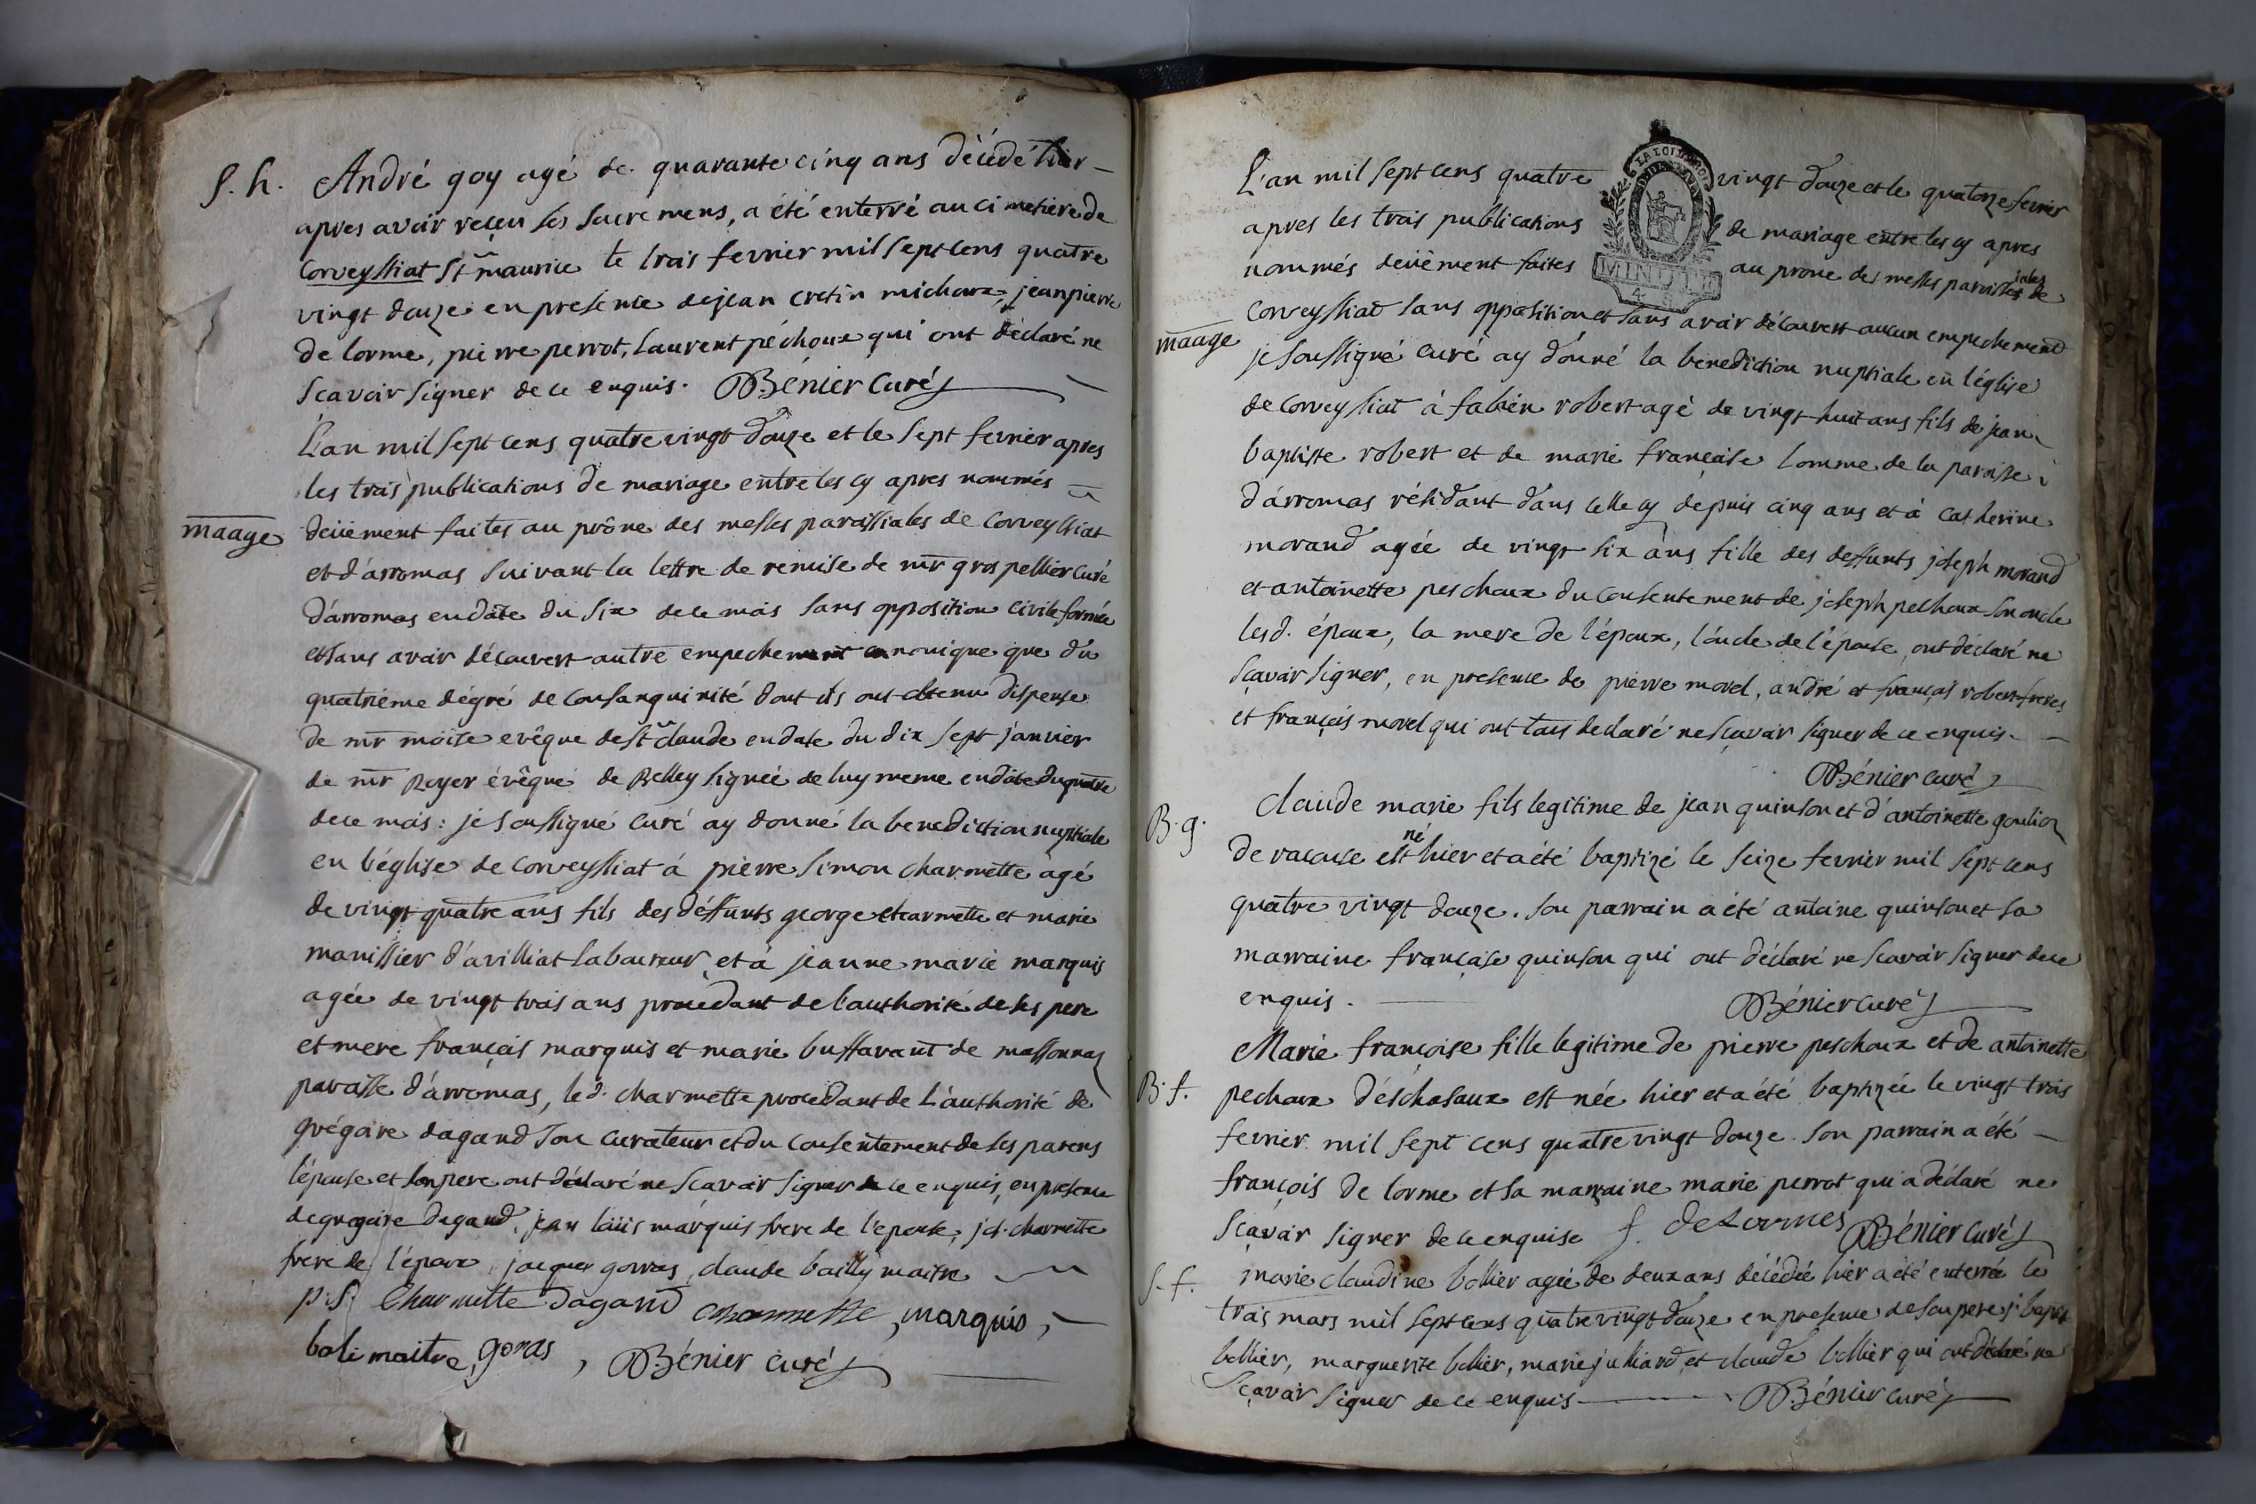 S. h. André goy agé de quarante cinq ans décédé hier
apres avoir reçeu ses sacremens, a été enterré au cimetiere de
Corveyssiat St maurice le trois fevrier mil sept cens quatre
vingt douze en presence de jean cretin michoux, jean pierre
de lorme, pierre perrot, laurent péchoux qui ont déclaré ne
scavoir signer de ce enquis. Bénier curé
L'an mil sept cens quatre vingt douze et le sept fevrier apres
les trois publications de mariage entre les cy apres nommés
maage deüement faites au prône des messes paroissiales de Corveyssiat
et d'arromas suivant la lettre de remise de mr gros pellier curé
d'arromas en date du six de ce mois sans opposition civile formée
et sans avoir découvert autre empechement canonique que du
quatrième dégré de consanguinité dont ils ont obtenu dispense
de mr moise evêque de St claude en date du dix sept janvier
de mr Royer évêque de Belley signée de luy meme en date du quatre
de ce mois : je soussigné curé ay donné la benediction nuptiale
en l'église de Corveyssiat à pierre simon charmette agé
de vingt quatre ans fils des déffunts george charmette et marie
manissier d'avilliat laboureur, et à jeanne marie marquis
agée de vingt trois ans procedant de l'authorité de ses pere
et mere françois marquis et marie buffavant de massonnas
paroisse d'arromas, le d. charmette procedant de L'authorité de
grégoire dagand son curateur et du consentement de ses parens
l'épouse et son pere ont déclaré ne scavoir signer de ce enquis, en presence
de gregoire dagand, jean loüis marquis frere de l'epouse, j ch. charmette
frere de l'époux, jacques gorras, claude bailly maitre
p. S. Charmette Dagand charmette, marquis,
bali maitre, goras, Bénier curé
L'an mil sept cens quatre vingt douze et le quatorze fevrier
LA LOI
apres les trois publications de mariage entre les cy apres
nommés deüêment faites au prone des messes paroissiales de
Corveyssiat sans opposition et sans avoir découvert aucun empechement
maage je soussigné curé ay donné la benediction nuptiale en l'église
de Corveyssiat à fabien robert agé de vingt huit ans fils de jean
baptiste robert et de marie françoise lomme de la paroisse
d'arromas résidant dans celle cy depuis cinq ans et à catherine
morand agée de vingt six ans fille des deffunts joseph morand
et antoinette peschoux du consentement de joseph peschoux son oncle
les d. époux, la mere de l'époux, l'oncle de l'épouse, ont déclaré ne
sçavoir signer, en presence de pierre morel, andré et françois robert freres
et françois morel qui ont tous declaré ne sçavoir signer de ce enquis.
Bénier curé
B. g. claude marie fils legitime de jean quinson et d'antoinette goulion
de racouse est né hier et a été baptizé le seize fevrier mil sept cens
quatre vingt douze. son parrain a été antoine quinson et sa
marraine françoise quinson qui ont déclaré ne scavoir signer de ce
enquis. Bénier curé
Marie françoise fille legitime de pierre peschoux et de antoinette
B. f. pechoux d'éschasaux est née hier et a été baptizée le vingt trois
fevrier mil sept cens quatre vingt douze. son parrain a été
françois de lorme et sa marraine marie perrot qui a déclaré ne
sçavoir signer de ce enquise f. delormes Bénier curé
S. f. marie claudine bollier agée de deux ans décédée hier a été enterrée le
trois mars mil sept cens quatre vingt douze en presence de son pere j. bapt
bollier, marguerite bollier, marie julliard, et claude bollier qui ont déclaré ne
sçavoir signer de ce enquis Bénier curé